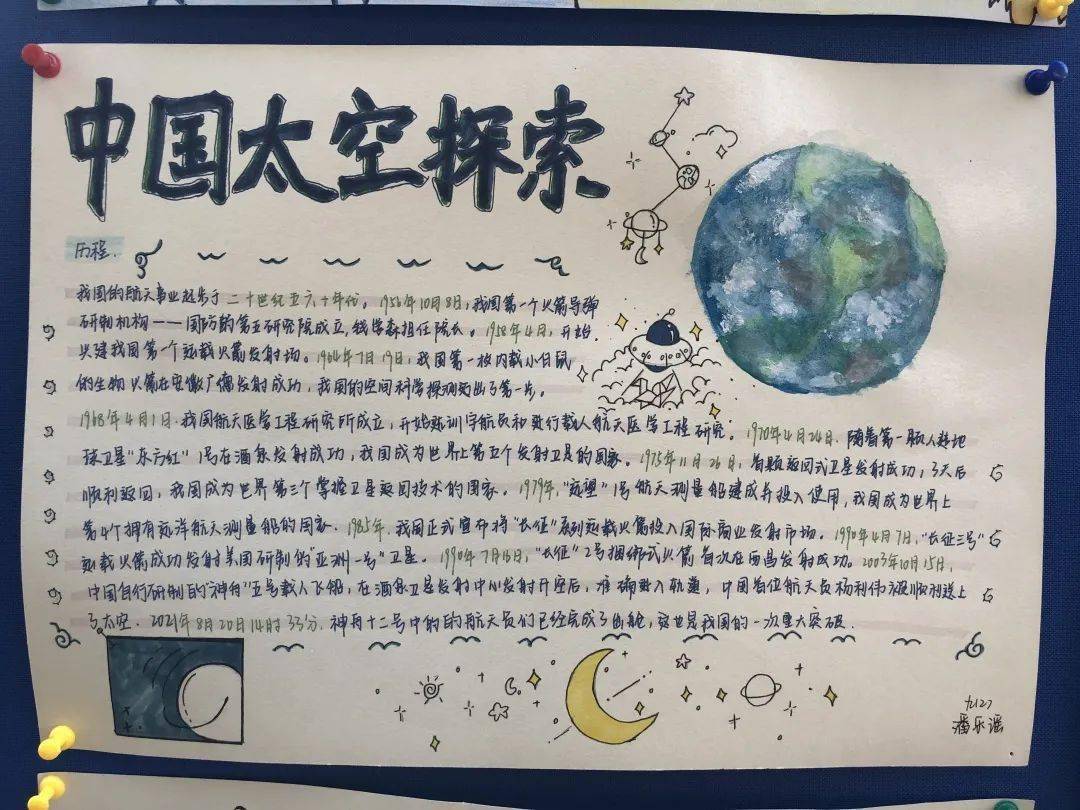 中国太空探索
历程.
我国的航天事业起步于二十世纪五六十年代。1956年10月8日,我国第一个火箭导弹
研制机构——国防部第五研究院成立,钱学森担任院长。1958年4月,开始
兴建我国第一个运载火箭发射场。1964年7月19日,我国第一枚内载小白鼠
的生物火箭在安徽广德发射成功,我国的空间科学探测迈出了第一步。
1968年4月1日,我国航天医学工程研究所成立,开始选训宇航员和进行载人航天医学工程研究。1970年4月24日,随着第一颗人造地
球卫星“东方红”1号在酒泉发射成功,我国成为世界上第五个发射卫星的国家。1975年11月26日,首颗返回式卫星发射成功,3天后
顺利返回,我国成为世界第三个掌握卫星返回技术的国家。1979年,“远望”1号航天测量船建成并投入使用,我国成为世界上
第4个拥有远洋航天测量船的国家.1985年,我国正式宣布将“长征”系列运载火箭投入国际商业发射市场。1990年4月7日,“长征三号”
运载火箭成功发射美国研制的“亚洲一号”卫星。1990年7月16日,“长征”2号捆绑式火箭首次在西昌发射成功。2003年10月15日,
中国自行研制的“神舟”五号载人飞船,在酒泉卫星发射中心发射升空后,准确进入轨道,中国首位航天员杨利伟被顺利送上
了太空.2021年8月20日14时33分,神舟十二号中的的航天员们已经完成了出舱,这也是我国的一次重大突破.
潘乐谣